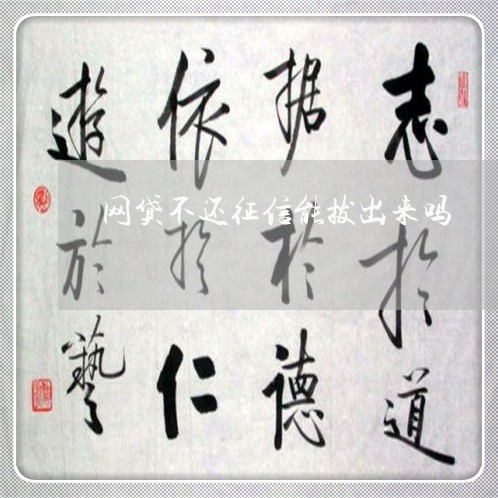 志於道
据於德
依於仁
遊於藝
网贷不还征信能拔出来吗